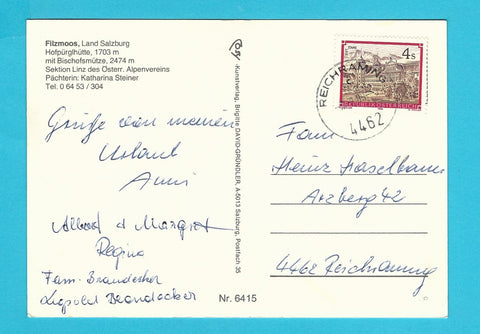 Filzmoos, Land Salzburg
Hofpürglhütte, 1703 m
mit Bischofsmütze, 2474 m
Sektion Linz des Österr. Alpenvereins
Pächterin: Katharina Steiner
Tel. 0 64 53 / 304
Grüße von meinem
Urlaub
Anni
Albert + Margret
Regina
Fam. Brandecker
Leopold Brandecker
Kunstverlag, Brigitte DAVID-GRÜNDLER, A-5013 Salzburg, Postfach 35
Nr. 6415
4 S
REPUBLIK ÖSTERREICH
REICHRAMING
4462
Fam
Heinz Haselbauer
Arzberg 42
4462 Reichraming